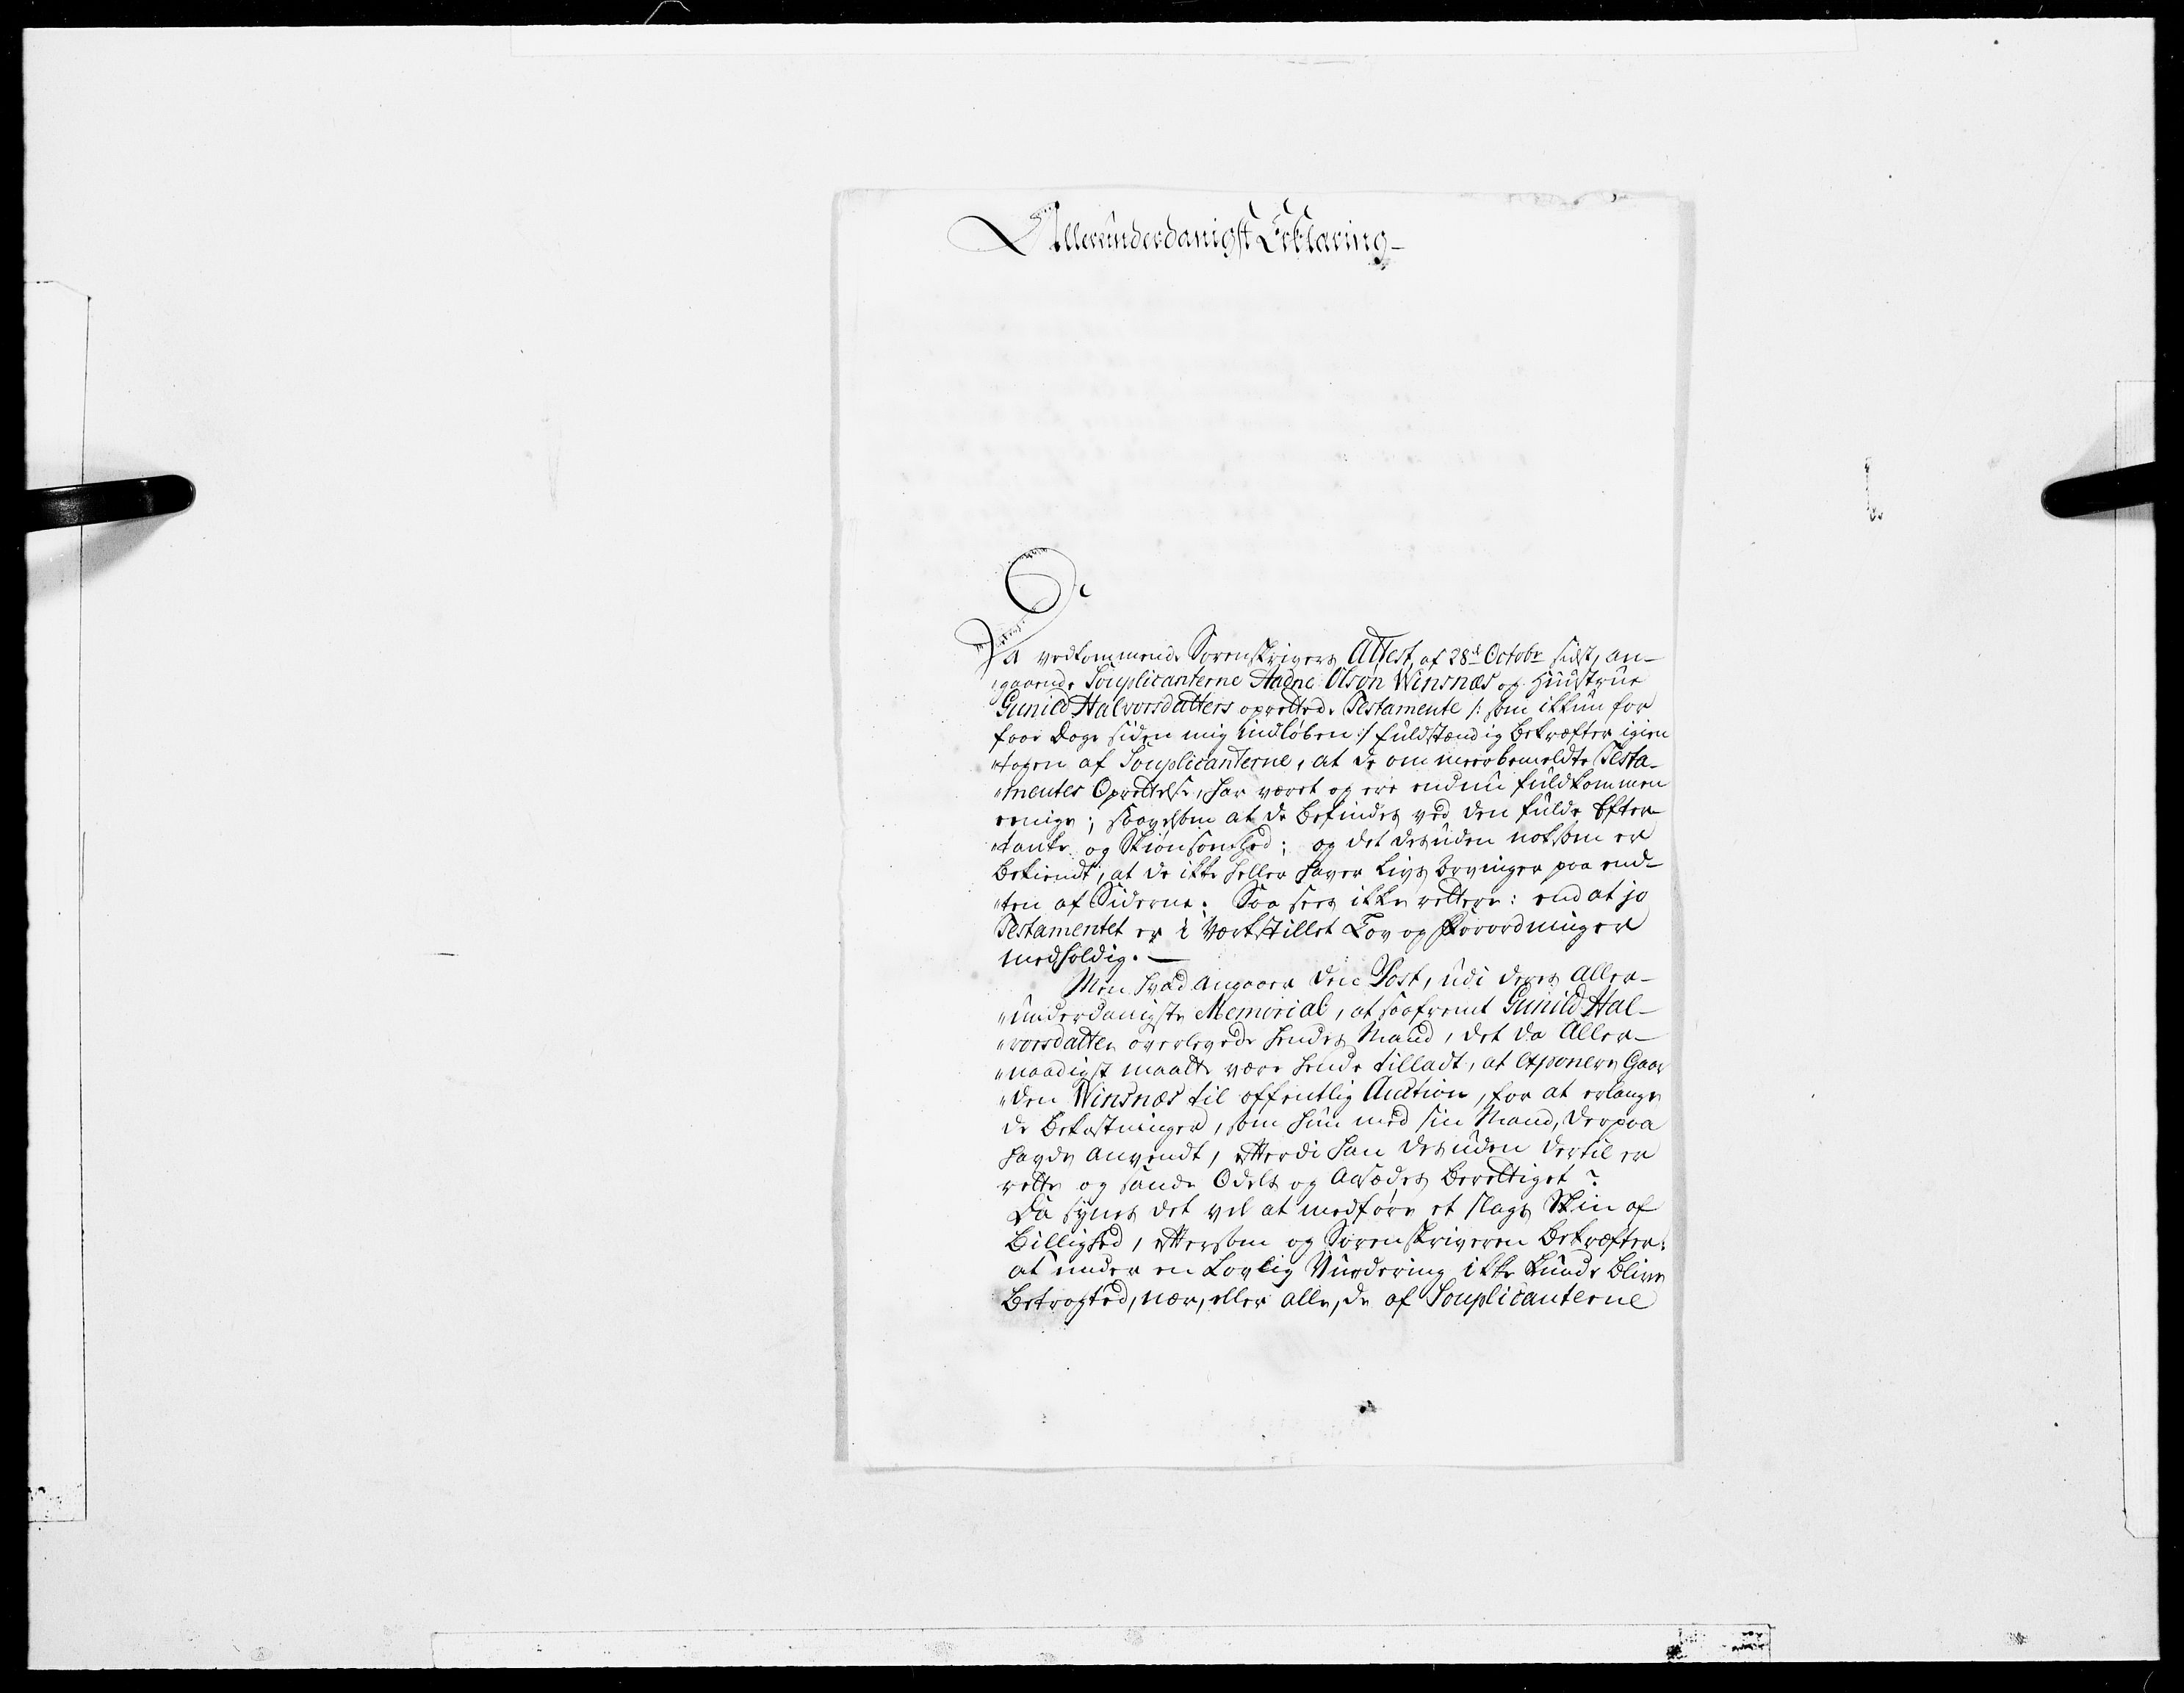 Allerunderdanigst Erklaring-
Da vedkommende Sorenskrivers Attest, af 28de Octobr sidst, an-
"gaaende Souplicanterne Aadne Olsøn Winsnæs og Hustrue
Gunild Halvorsdatters oprettede Testamente /: som ikkun for
faae Dage siden mig indløben :/ fuldstændig bekræfter igien
"tagen af Souplicanterne, at de om meerbemeldte Testa-
"mentes Oprettelse, har været og ere endnu fuldkommen
eenige; saavelsom at de befindes ved den fulde Efter-
"tanke og Skiønsomhed; og det desuden noksom er
bekiendt, at de ikke heller haver Livs Arvinger paa end-
"ten af Siderne. Saa sees ikke rettere: end at jo
Testamentet er i Værkstillet Lov og Forordninger
medholdig. —
Men hvad angaaer den Post, udi deres Aller-
"underdanigste Memorial, at saafremt Gunild Hal-
"vorsdatter overlevede hendes Mand, det da Aller-
"naadigst maatte være hende tilladt, at exponere Gaar
"den Winsnæs til offentlig Auction, for at erlange
de Bekostninger, som hun med sin Mand, derpaa
havde anvendt, efterdi han desuden dertil er
rette og sande Odels og Aasædes Berettiget?
Da synes det vel at medføre et slags Skin af
Billighed, eftersom og Sorenskriveren bekræfter:
at under en Lovlig Vurdering ikke kunde blive
betragted, nær, eller alle, de af Souplicanterne